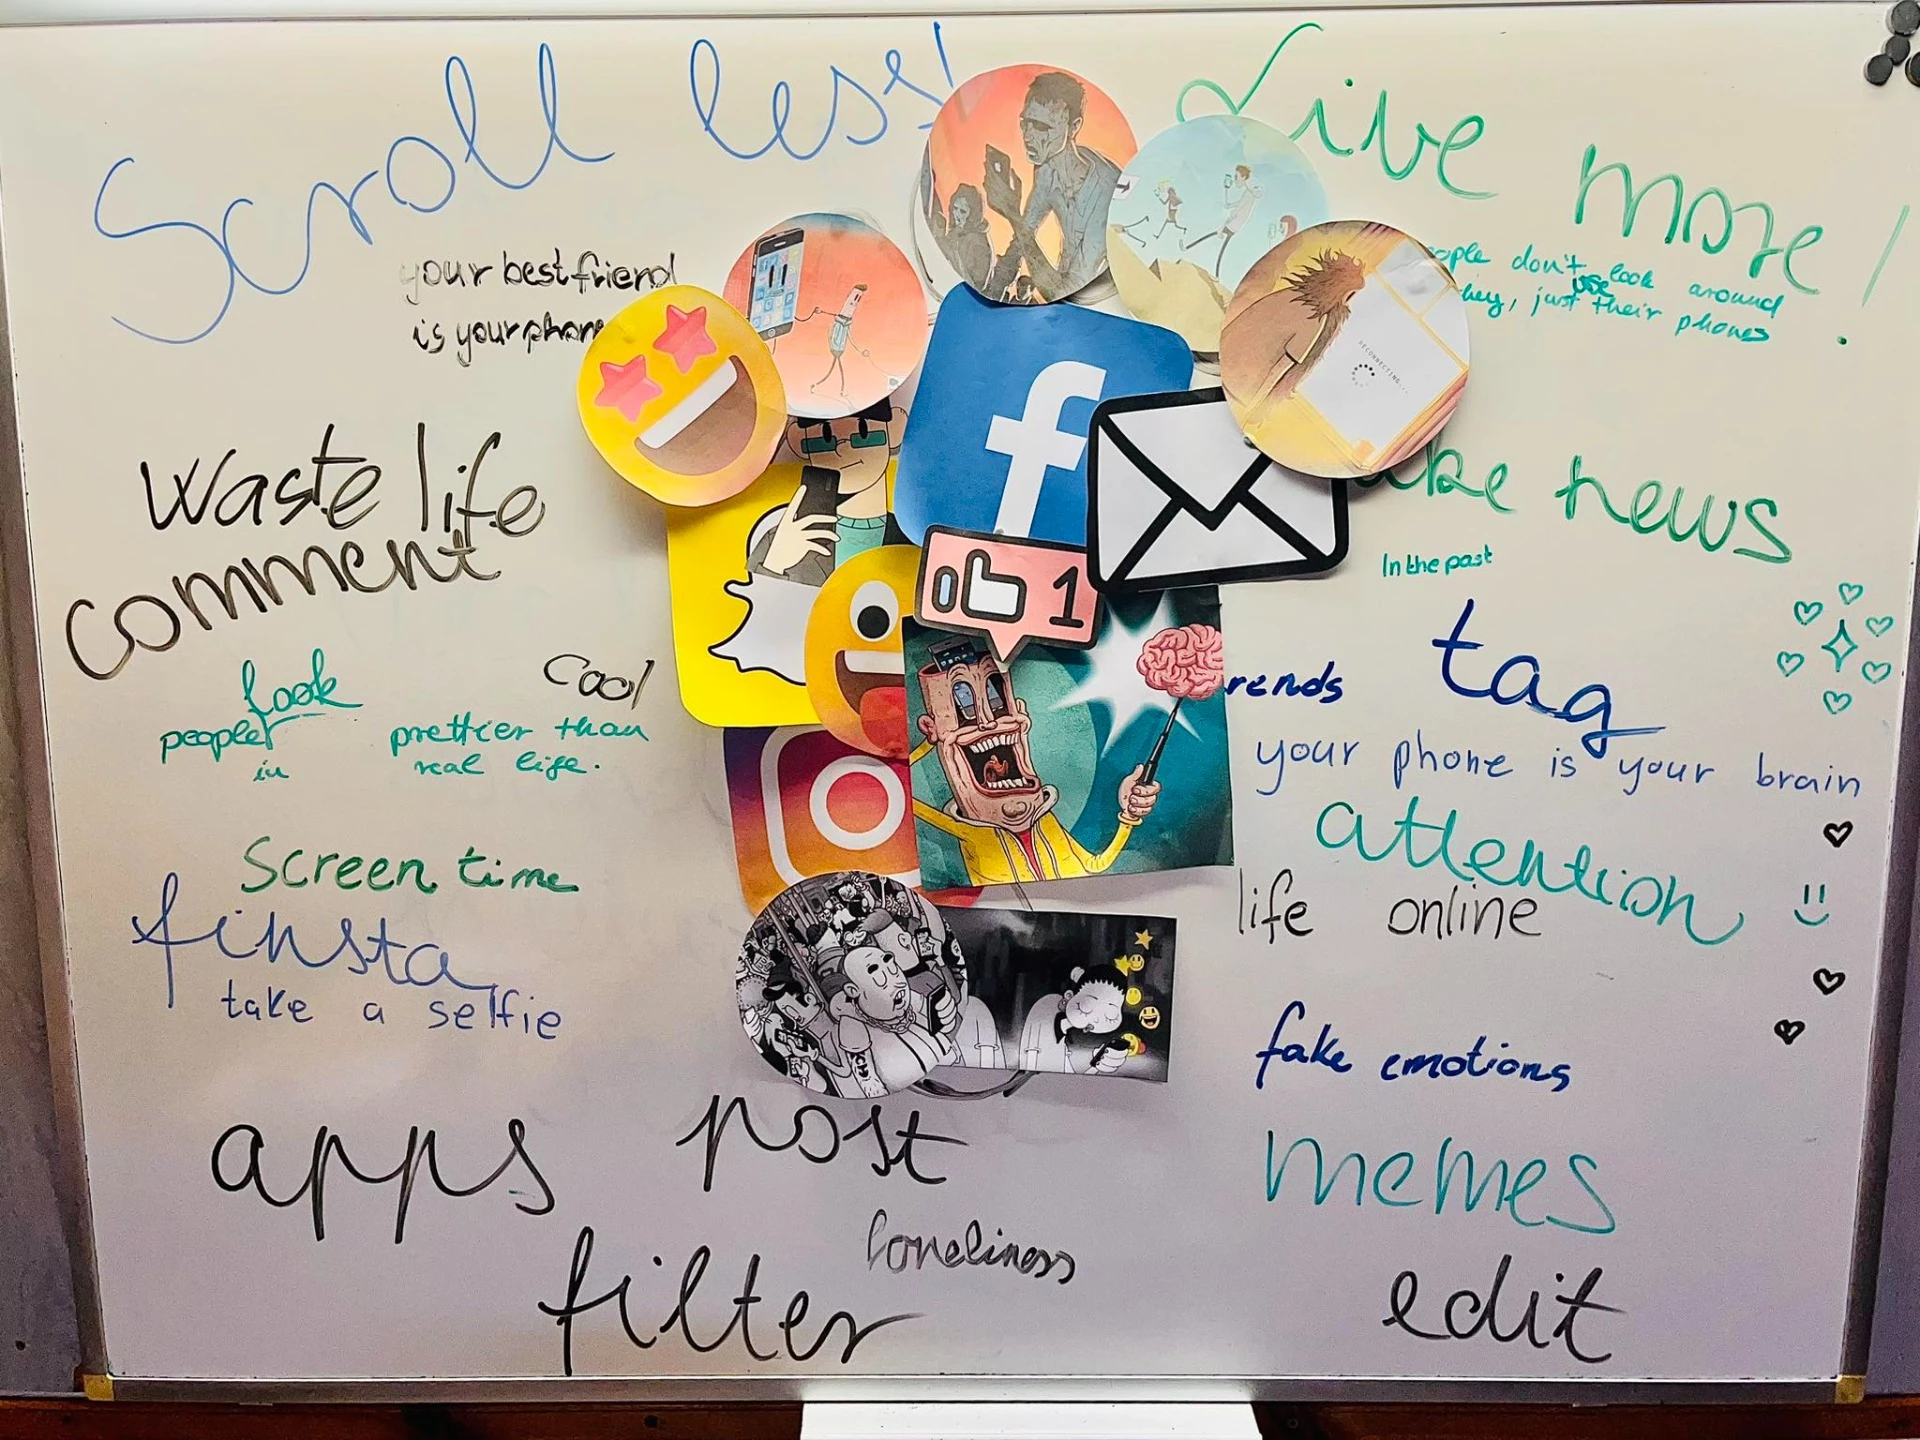 Scroll less!
Live more!
your best friend
is your phone
don't look around
use
just their phones
RECONNECTING...
Waste life
comment
news
In the past
1
look
people
in
Cool
prettier than
real life.
tag
your phone is your brain
attention
Screen time
finsta
take a selfie
life online
fake emotions
apps
post
memes
loneliness
filter
edit